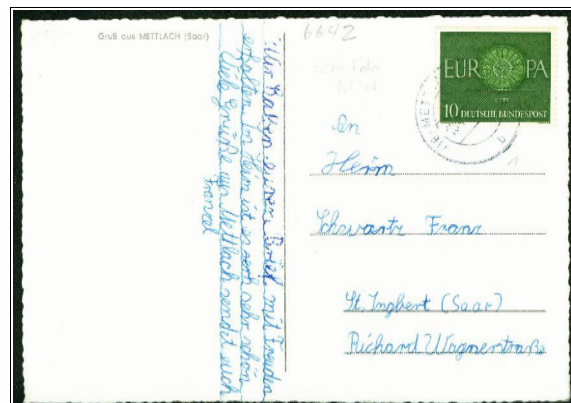 Gruß aus METTLACH (Saar)
6642
EUROPA
10 DEUTSCHE BUNDESPOST
Wir haben euren Brief mit Freuden
erhalten im Heim ist es sehr schön
Viele Grüße aus Mettlach sendet euch
An
Herrn
Schwartz Franz
St. Ingbert (Saar)
Richard Wagnerstraße